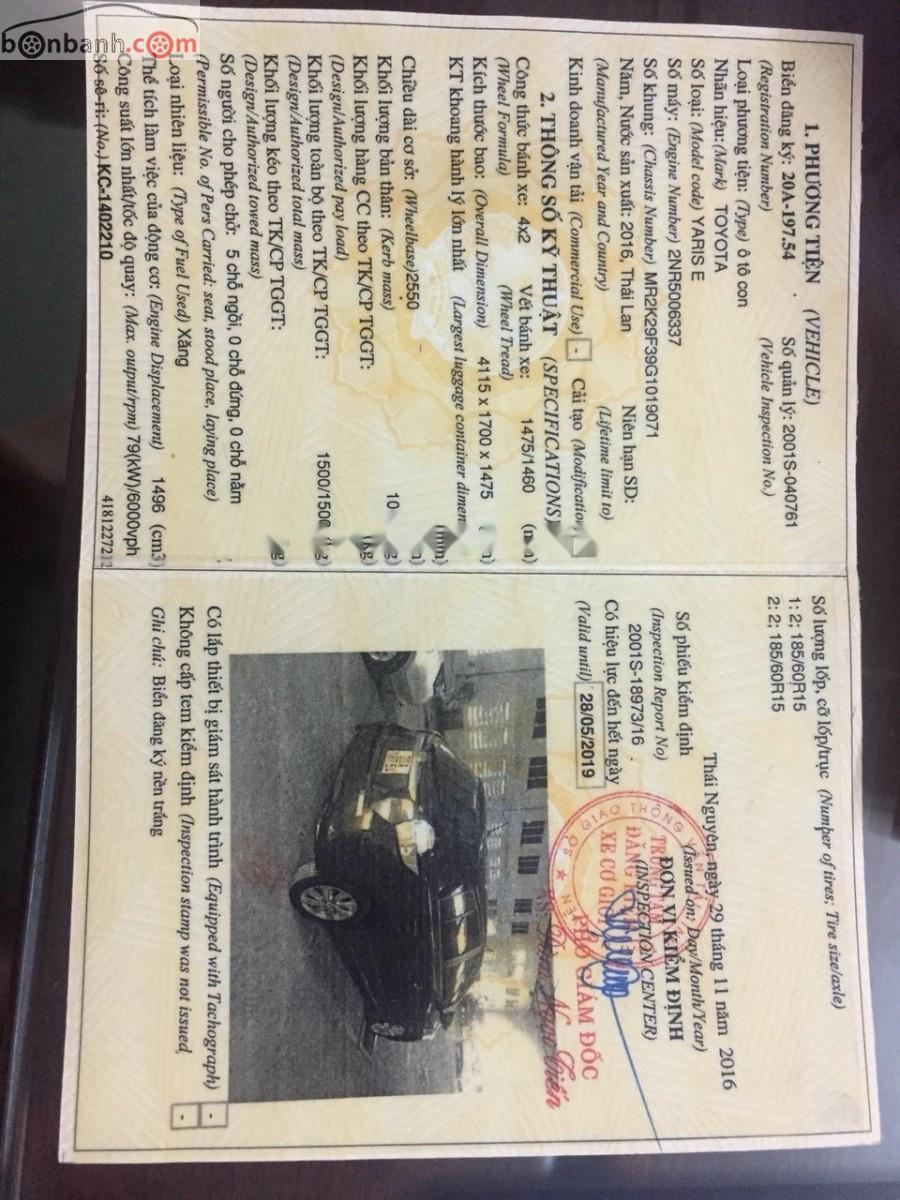 bonbanh.com
1. PHƯƠNG TIỆN (VEHICLE)
Biển đăng ký: 20A-197.54 Số quản lý: 2001S-040761
(Registration Number) (Vehicle Inspection No.)
Loại phương tiện: (Type) ô tô con
Nhãn hiệu: (Mark) TOYOTA
Số loại: (Model code) YARIS E
Số máy: (Engine Number) 2NR5006337
Số khung: (Chassis Number) MR2K29F39G1019071
Năm, Nước sản xuất: 2016, Thái Lan Niên hạn SD:
(Manufactured Year and Country) (Lifetime limit to)
Kinh doanh vận tải (Commercial Use) - Cải tạo (Modification -
2. THÔNG SỐ KỸ THUẬT (SPECIFICATIONS)
Công thức bánh xe: 4x2 Vết bánh xe: 1475/1460
(Wheel Formula) (Wheel Tread)
Kích thước bao: (Overall Dimension) 4115 x 1700 x 1475
KT khoang hành lý lớn nhất (Largest luggage container dimen
(mm)
Chiều dài cơ sở: (Wheelbase) 2550
Khối lượng bản thân: (Kerb mass) 10
Khối lượng hàng CC theo TK/CP TGGT:
(Design/Authorized pay load)
Khối lượng toàn bộ theo TK/CP TGGT: 1500/1500
(Design/Authorized total mass)
Khối lượng kéo theo TK/CP TGGT:
(Design/Authorized towed mass)
Số người cho phép chở: 5 chỗ ngồi, 0 chỗ đứng, 0 chỗ nằm
(Permissible No. of Pers Carried: seat, stood place, laying place)
Loại nhiên liệu: (Type of Fuel Used) Xăng
Thể tích làm việc của động cơ: (Engine Displacement) 1496 (cm3)
Công suất lớn nhất/tốc độ quay: (Max. output/rpm) 79(kW)/6000vph
Số sê-ri: (No.) KC-1402210 4181227212
Số lượng lốp, cỡ lốp/trục (Number of tires; Tire size/axle)
1: 2; 185/60R15
2: 2; 185/60R15
Thái Nguyên, ngày 29 tháng 11 năm 2016
(Issued on: Day/Month/Year)
Số phiếu kiểm định ĐƠN VỊ KIỂM ĐỊNH
(Inspection Report No) (INSPECTION CENTER)
2001S-18973/16
Có hiệu lực đến hết ngày
(Valid until) 28/05/2019
SỞ GIAO THÔNG VẬN TẢI
TRUNG TÂM
ĐĂNG
XE CƠ GIỚI
PHÓ GIÁM ĐỐC
Có lắp thiết bị giám sát hành trình (Equipped with Tachograph) -
Không cấp tem kiểm định (Inspection stamp was not issued) -
Ghi chú: Biển đăng ký nền trắng